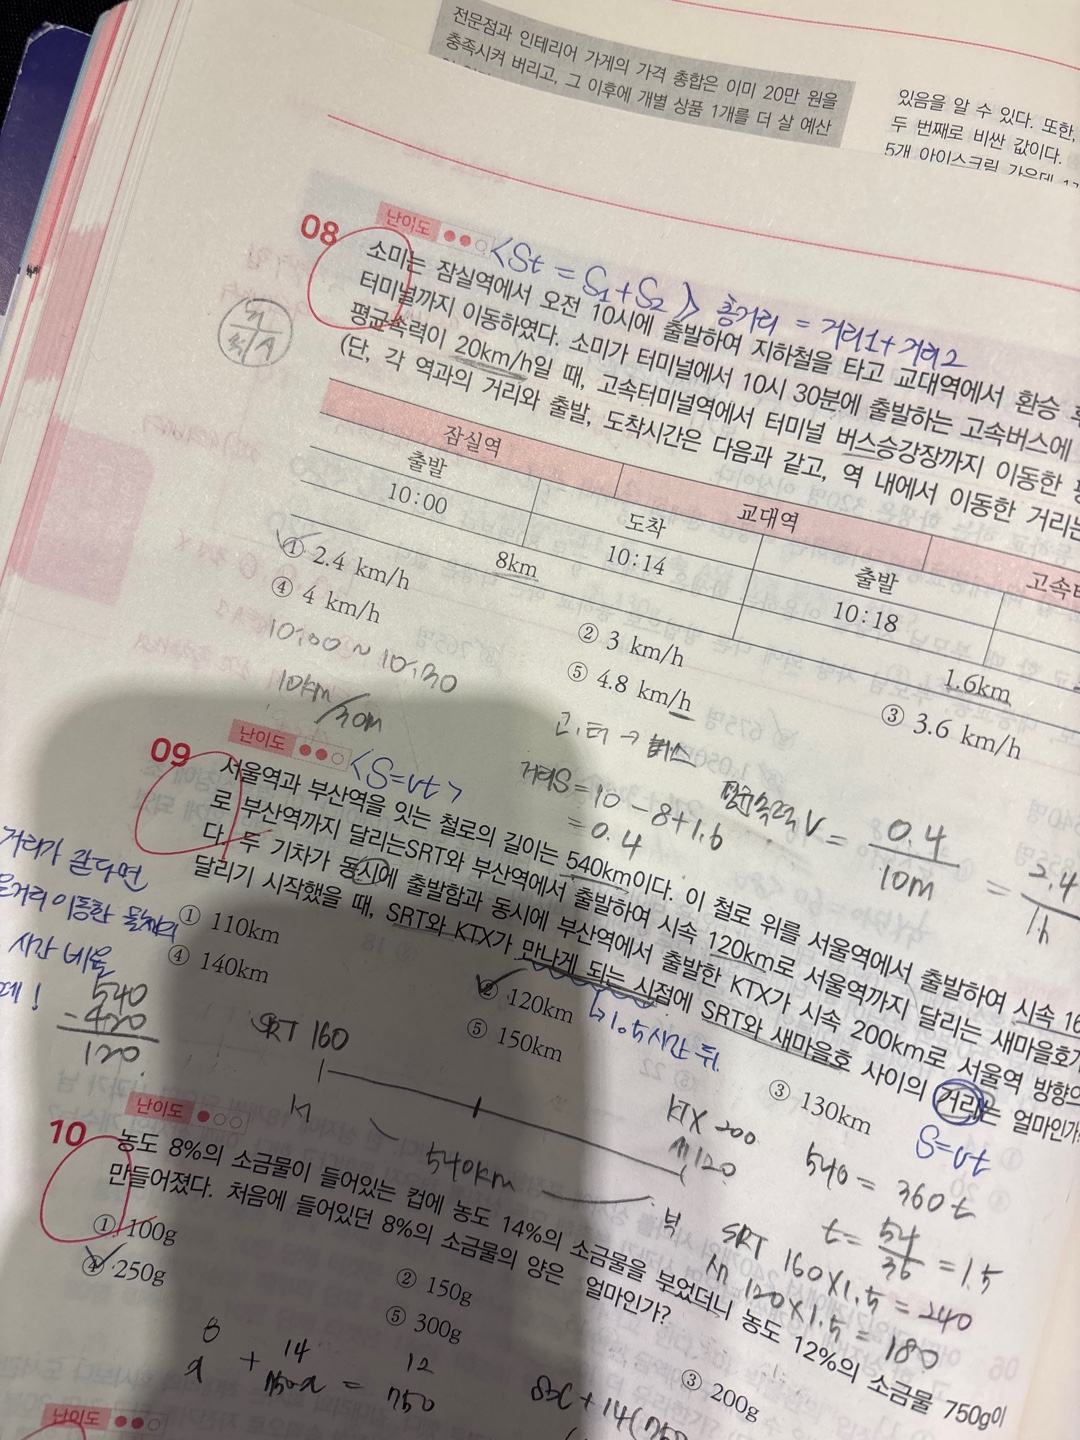 전문점과 인테리어 가게의 가격 총합은 이미 20만 원을
충족시켜 버리고, 그 이후에 개별 상품 1개를 더 살 예산
있음을 알 수 있다. 또한,
두 번째로 비싼 값이다.
5개 아이스크림 가운데
08 난이도
<St = S1 + S2> 총거리 = 거리1 + 거리2
소미는 잠실역에서 오전 10시에 출발하여 지하철을 타고 교대역에서 환승
터미널까지 이동하였다. 소미가 터미널에서 10시 30분에 출발하는 고속버스에
평균속력이 20km/h일 때, 고속터미널역에서 터미널 버스승강장까지 이동한
(단, 각 역과의 거리와 출발, 도착시간은 다음과 같고, 역 내에서 이동한 거리는
잠실역 교대역
출발 도착 출발
10:00 10:14 10:18
8km 1.6km
① 2.4 km/h ② 3 km/h ③ 3.6 km/h
④ 4 km/h ⑤ 4.8 km/h
10:00 ~ 10:30
10km/30M
고.터 → 버스
거리S = 10 - 8+1.6
= 0.4
평균속력 V = 0.4/10m = 2.4/1h
09 난이도
<S=vt>
서울역과 부산역을 잇는 철로의 길이는 540km이다. 이 철로 위를 서울역에서 출발하여 시속 16
로 부산역까지 달리는SRT와 부산역에서 출발하여 시속 120km로 서울역까지 달리는 새마을호가
다. 두 기차가 동시에 출발함과 동시에 부산역에서 출발한 KTX가 시속 200km로 서울역 방향으
달리기 시작했을 때, SRT와 KTX가 만나게 되는 시점에 SRT와 새마을호 사이의 거리는 얼마인가?
① 110km ② 120km ③ 130km
④ 140km ⑤ 150km
거리가 같다면
이동한
시간 비율
540
- 420
120
1.5시간 뒤
S=vt
SRT 160
KTX 200
120
540km
540 = 360t
t = 54/36 = 1.5
SRT 160×1.5 = 240
120×1.5 = 180
10 난이도
농도 8%의 소금물이 들어있는 컵에 농도 14%의 소금물을 부었더니 농도 12%의 소금물 750g이
만들어졌다. 처음에 들어있던 8%의 소금물의 양은 얼마인가?
① 100g ② 150g ③ 200g
④ 250g ⑤ 300g
8 14 12
x + 750-x = 750
8x + 14(750
난이도